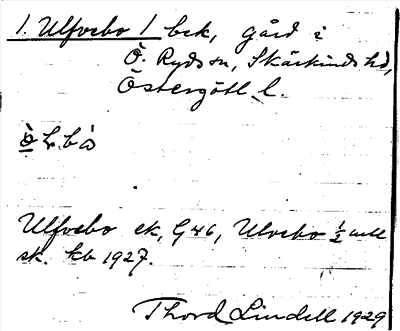 1. Ulfvebo 1 bck, gård i
Ö. Ryds sn, Skärkinds hd,
Östergötl l.
Ulfvebo ek, G 46, Ulvebo ½ mtl
sk. kb 1927.
Thord Lindell 1929